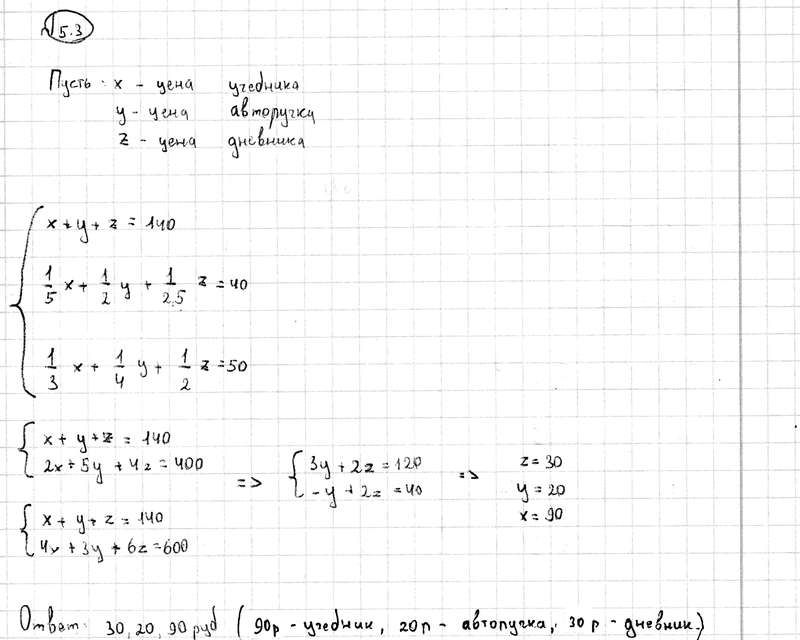 № 5.3
Пусть: x - цена учебника
y - цена авторучка
z - цена дневника
x + y + z = 140
1/5 x + 1/2 y + 1/2,5 z = 40
1/3 x + 1/4 y + 1/2 z = 50
x + y + z = 140
2x + 5y + 4z = 400
=> 3y + 2z = 120
-y + 2z = 40
=> z = 30
y = 20
x = 90
x + y + z = 140
4x + 3y + 6z = 600
Ответ: 30, 20, 90 руб (90р - учебник, 20р - авторучка, 30р - дневник.)